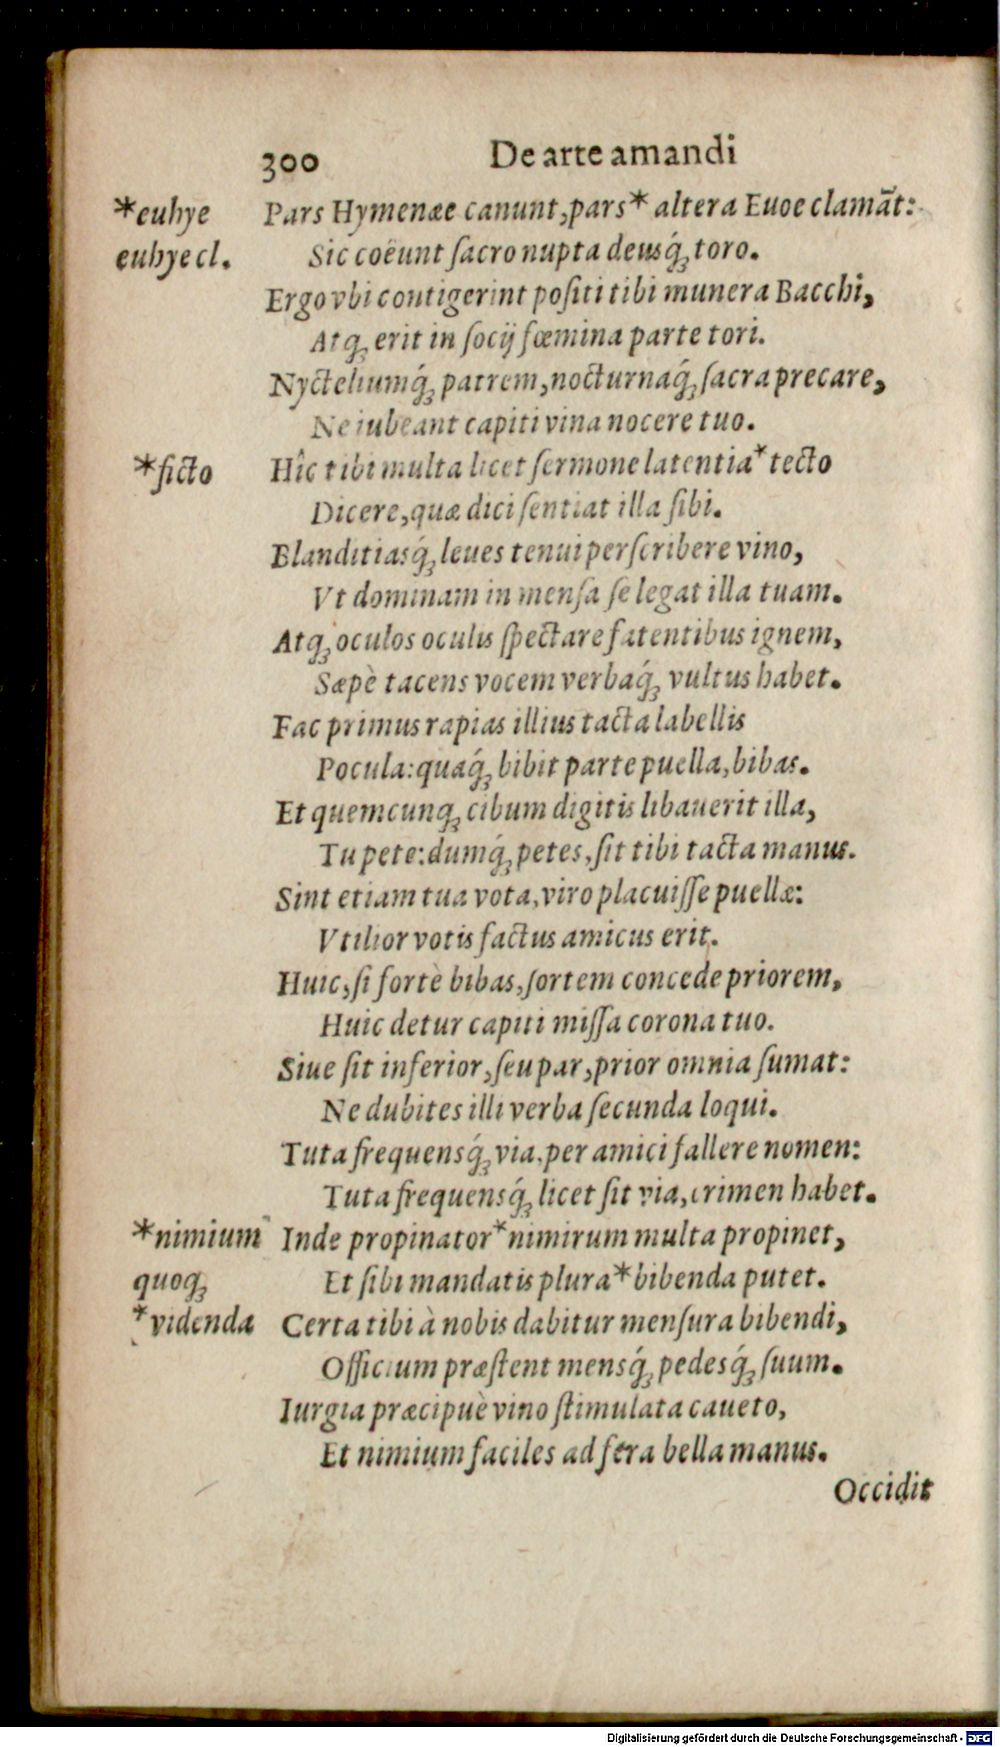 300 De arte amandi
*euhye
euhye cl.
Pars Hymenæe canunt, pars* altera Euoe clamāt:
Sic coëunt ſacro nupta deusq́ꝫ toro.
Ergo vbi contigerint poſiti tibi munera Bacchi,
Atqꝫ erit in ſocij fœmina parte tori.
Nycteliumq́ꝫ patrem, nocturnaq́ꝫ ſacra precare,
Ne iubeant capiti vina nocere tuo.
*ficto
Hîc tibi multa licet ſermone latentia* tecto
Dicere, quæ dici ſentiat illa ſibi.
Blanditiasq́ꝫ leues tenui perſcribere vino,
Vt dominam in menſa ſe legat illa tuam.
Atqꝫ oculos oculis ſpectare fatentibus ignem,
Sæpè tacens vocem verbaq́ꝫ vultus habet.
Fac primus rapias illius tacta labellis
Pocula: quaq́ꝫ bibit parte puella, bibas.
Et quemcunqꝫ cibum digitis libauerit illa,
Tu pete: dumq́ꝫ petes, ſit tibi tacta manus.
Sint etiam tua vota, viro placuiſſe puellæ:
Vtilior votis factus amicus erit.
Huic, ſi fortè bibas, ſortem concede priorem,
Huic detur capiti miſſa corona tuo.
Siue ſit inferior, ſeu par, prior omnia ſumat:
Ne dubites illi verba ſecunda loqui.
Tuta frequensq́ꝫ via. per amici fallere nomen:
Tuta frequensq́ꝫ licet ſit via, crimen habet.
*nimium
quoqꝫ
*videnda
Inde propinator* nimirum multa propinet,
Et ſibi mandatis plura* bibenda putet.
Certa tibi à nobis dabitur menſura bibendi,
Officium præſtent mensq́ꝫ pedesq́ꝫ ſuum.
Iurgia præcipuè vino ſtimulata caueto,
Et nimium faciles ad fera bella manus.
Occidit
Digitalisierung gefördert durch die Deutsche Forschungsgemeinschaft - DFG